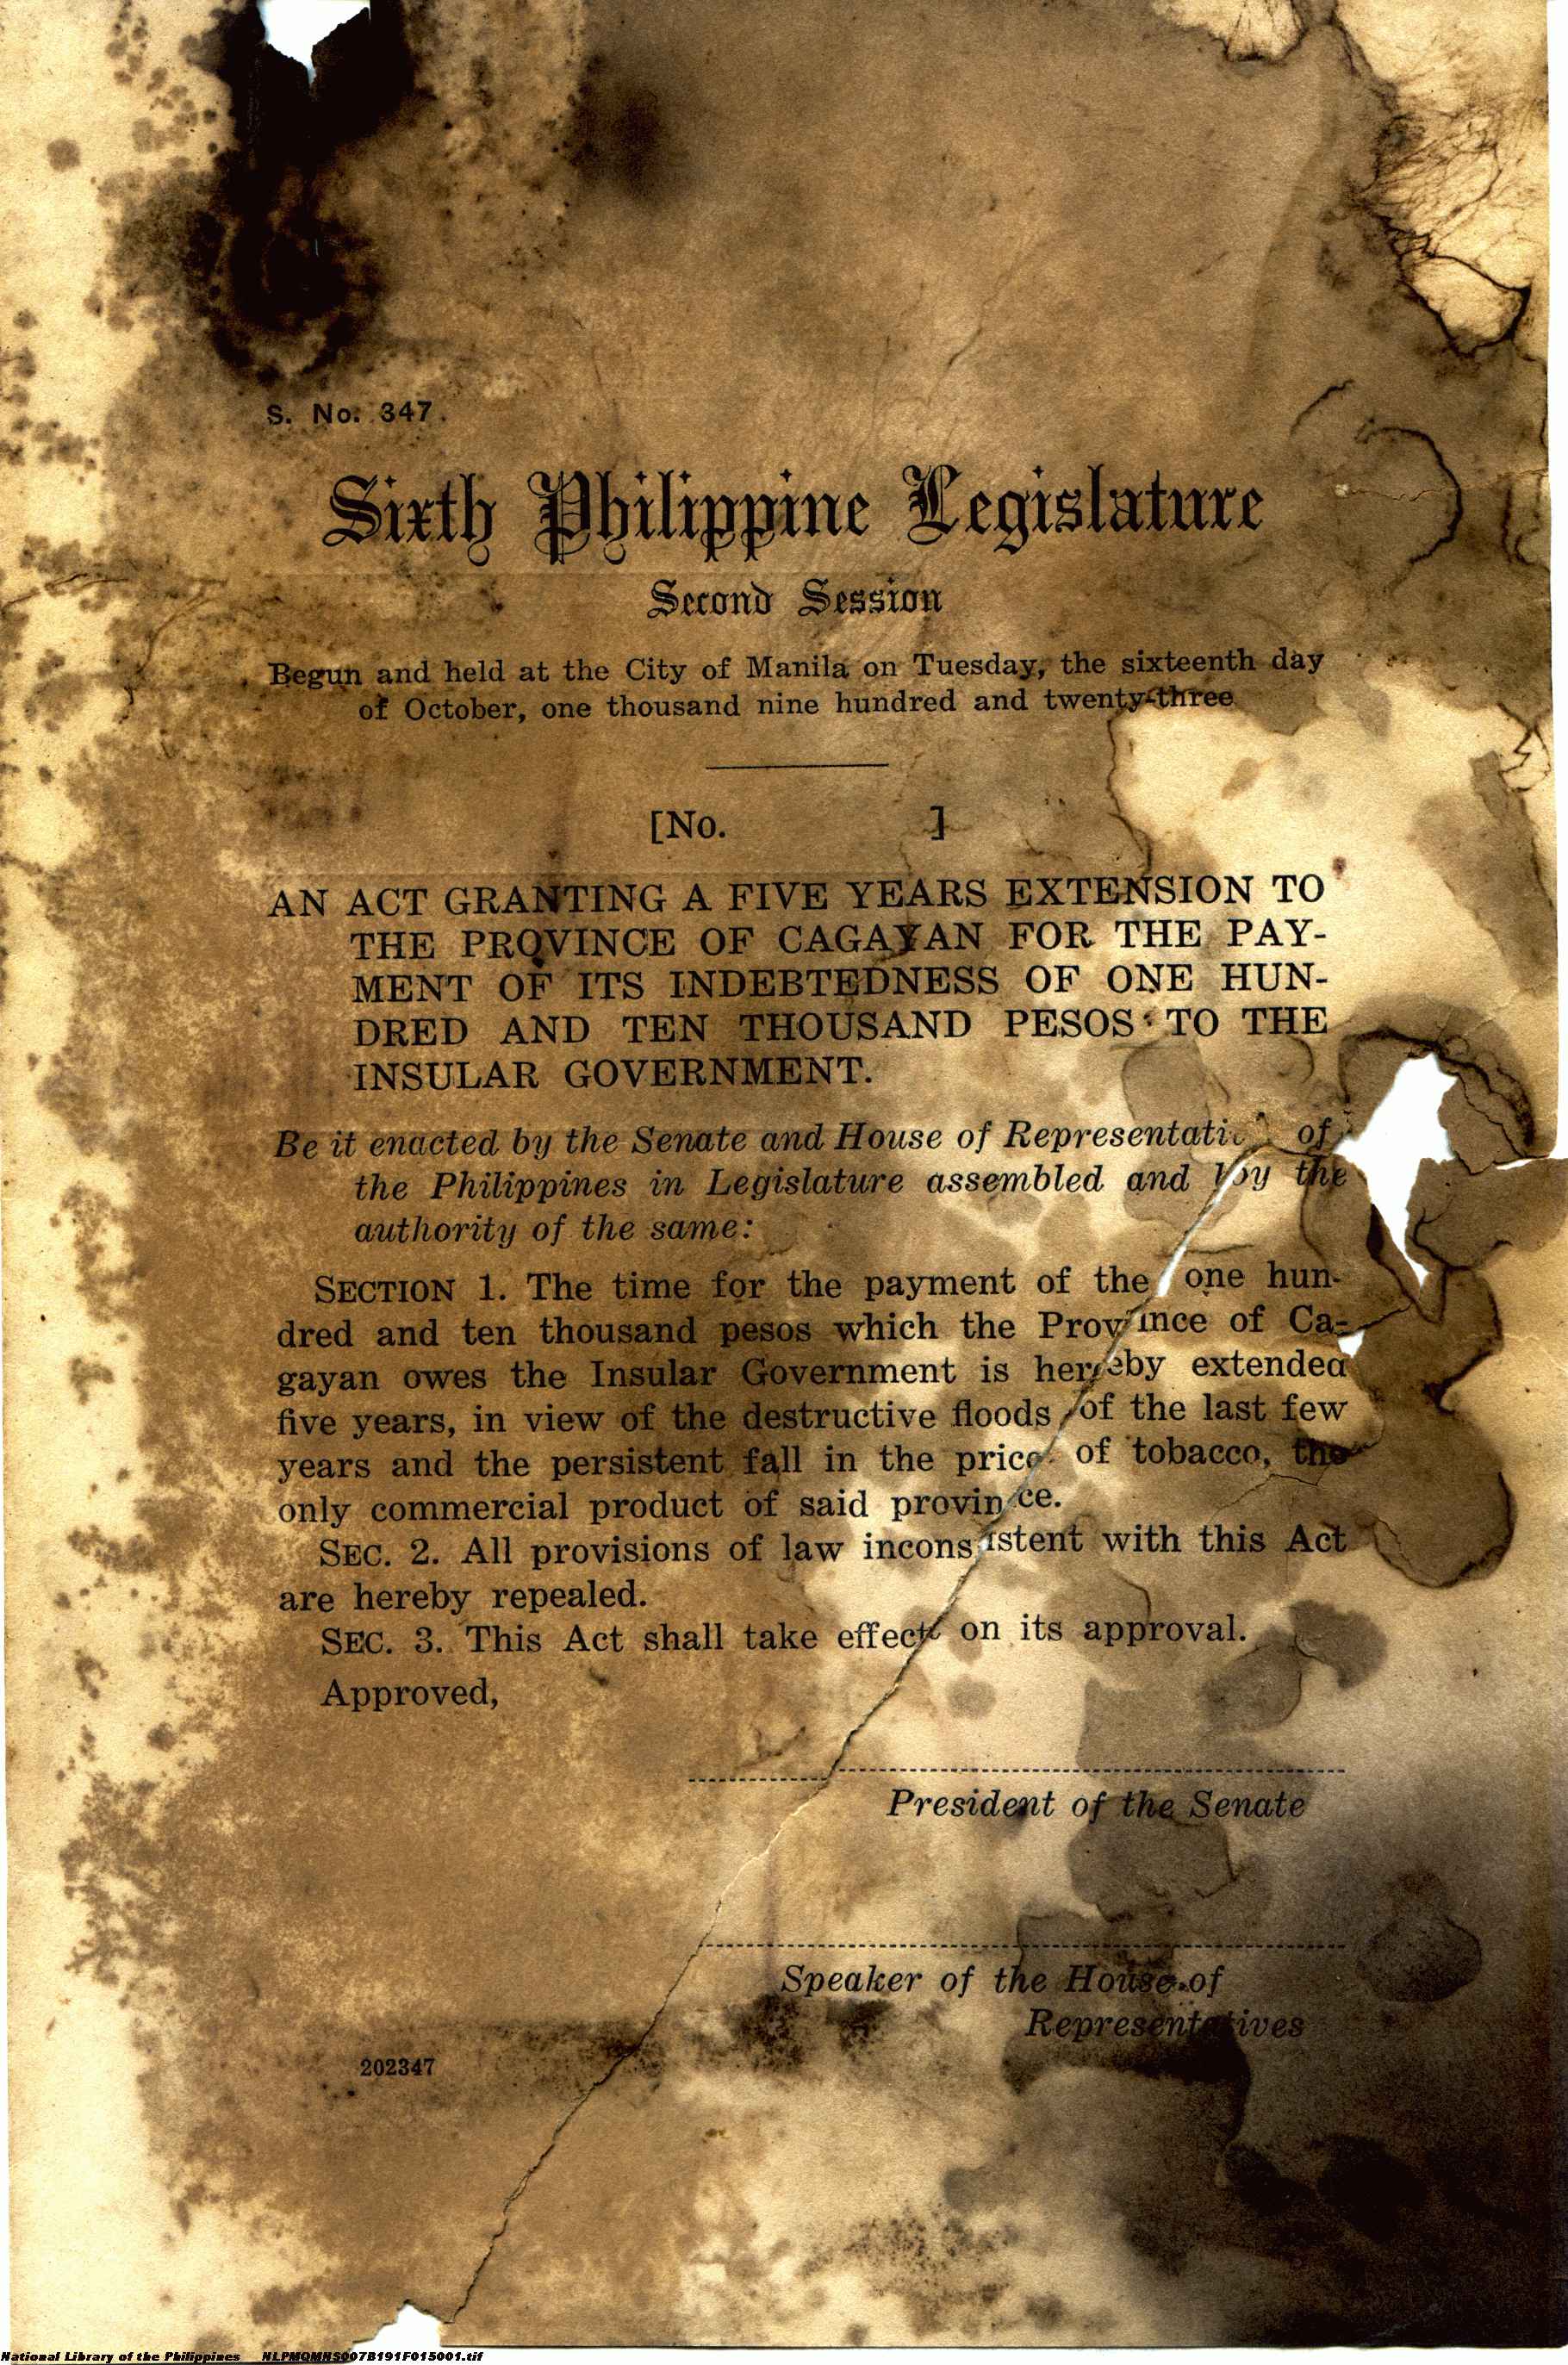 S. No. 347.
Sixth Philippine Legislature
Second Session
Begun and held at the City of Manila on Tuesday, the sixteenth day
of October, one thousand nine hundred and twenty-three
[No. ]
AN ACT GRANTING A FIVE YEARS EXTENSION TO
THE PROVINCE OF CAGAYAN FOR THE PAY-
MENT OF ITS INDEBTEDNESS OF ONE HUN-
DRED AND TEN THOUSAND PESOS TO THE
INSULAR GOVERNMENT.
Be it enacted by the Senate and House of of
the Philippines in Legislature assembled and by the
authority of the same:
SECTION 1. The time for the payment of the one hun-
dred and ten thousand pesos which the Province of Ca-
gayan owes the Insular Government is hereby extended
five years, in view of the destructive floods of the last few
years and the persistent fall in the price of tobacco, the
only commercial product of said province.
SEC. 2. All provisions of law inconsistent with this Act
are hereby repealed.
SEC. 3. This Act shall take effect on its approval.
Approved,
President of the Senate
Speaker of the House of
Representatives
202347
National Library of the Philippines NLPMQMNS007B191F015001.tif